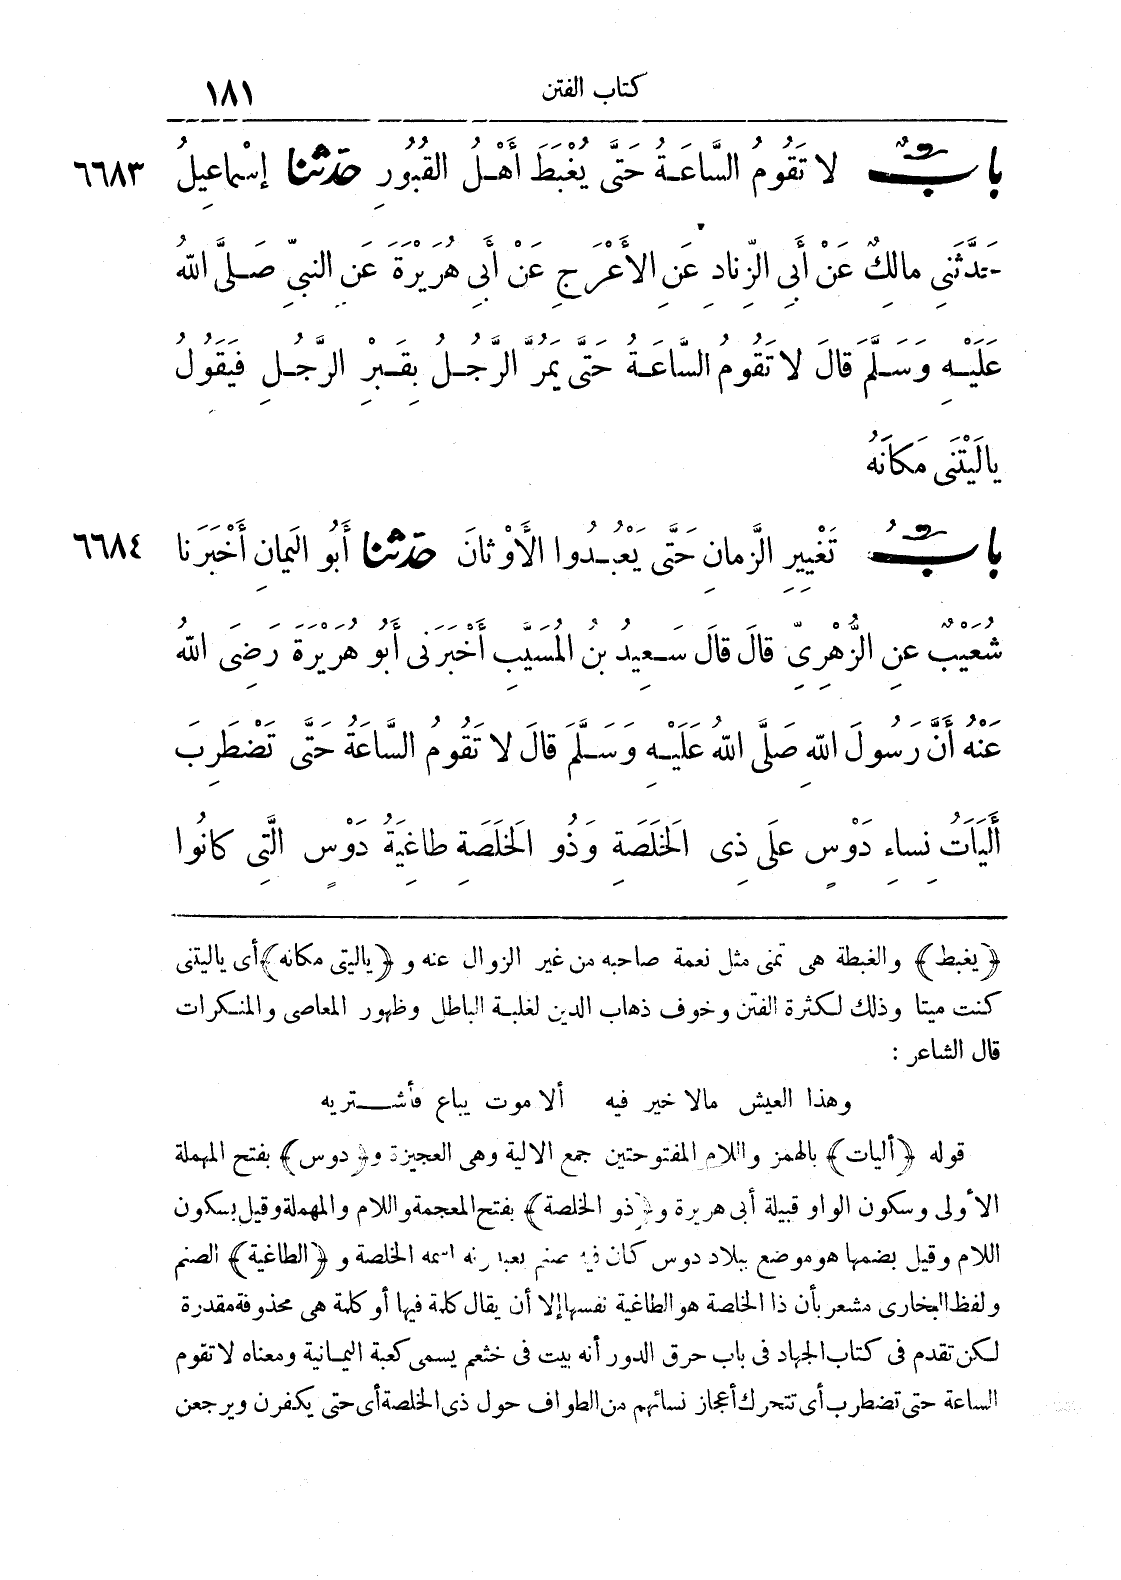 كتاب الفتن ١٨١
بابٌ لا تَقُومُ السَّاعَةُ حَتَّى يُغْبَطَ أَهْلُ القُبُورِ حدثنا إِسْماعِيلُ ٦٦٨٣
حَدَّثَنِى مالِكٌ عَنْ أَبِى الزِّنادِ عَنِ الأَعْرَجِ عَنْ أَبِى هُرَيْرَةَ عَنِ النبيِّ صَلَّى اللهُ
عَلَيْهِ وَسَلَّمَ قالَ لا تَقُومُ السَّاعَةُ حَتَّى يَمُرَّ الرَّجُلُ بِقَبْرِ الرَّجُلِ فَيَقُولُ
يالَيْتَنِى مَكانَهُ
بابُ تَغْيِيرِ الزَّمانِ حَتَّى يَعْبُدُوا الأَوْثانَ حدثنا أَبُو اليَمانِ أَخْبَرَنا ٦٦٨٤
شُعَيْبٌ عنِ الزُّهْرِىِّ قالَ قالَ سَعِيدُ بنُ المُسَيَّبِ أَخْبَرَنِى أَبُو هُرَيْرَةَ رَضِىَ اللهُ
عَنْهُ أَنَّ رَسُولَ اللهِ صَلَّى اللهُ عَلَيْهِ وَسَلَّمَ قالَ لا تَقُومُ السَّاعَةُ حَتَّى تَضْطَرِبَ
أَلَياتُ نِساءِ دَوْسٍ عَلَى ذِى الخَلَصَةِ وَذُو الخَلَصَةِ طاغِيَةُ دَوْسٍ الَّتِى كانُوا
﴿يغبط﴾ والغبطة هى تمنى مثل نعمة صاحبه من غير الزوال عنه و ﴿ياليتى مكانه﴾ أى ياليتنى
كنت ميتا وذلك لكثرة الفتن وخوف ذهاب الدين لغلبة الباطل وظهور المعاصى والمنكرات
قال الشاعر :
وهذا العيش مالا خير فيه ألا موت يباع فأشتريه
قوله ﴿أليات﴾ بالهمز واللام المفتوحتين جمع الالية وهى العجيزة و﴿دوس﴾ بفتح المهملة
الأولى وسكون الواو قبيلة أبى هريرة و﴿ذو الخلصة﴾ بفتح المعجمة واللام والمهملة وقيل بسكون
اللام وقيل بضمها هو موضع ببلاد دوس كان فيه صنم يعبدونه اسمه الخلصة و ﴿الطاغية﴾ الصنم
ولفظ البخارى مشعر بأن ذا الخلصة هو الطاغية نفسها إلا أن يقال كلمة فيها أو كلمة هى محذوفة مقدرة
لكن تقدم فى كتاب الجهاد فى باب حرق الدور أنه بيت فى خثعم يسمى كعبة اليمانية ومعناه لا تقوم
الساعة حتى تضطرب أى تتحرك أعجاز نسائهم من الطواف حول ذى الخلصة أى حتى يكفرن ويرجعن